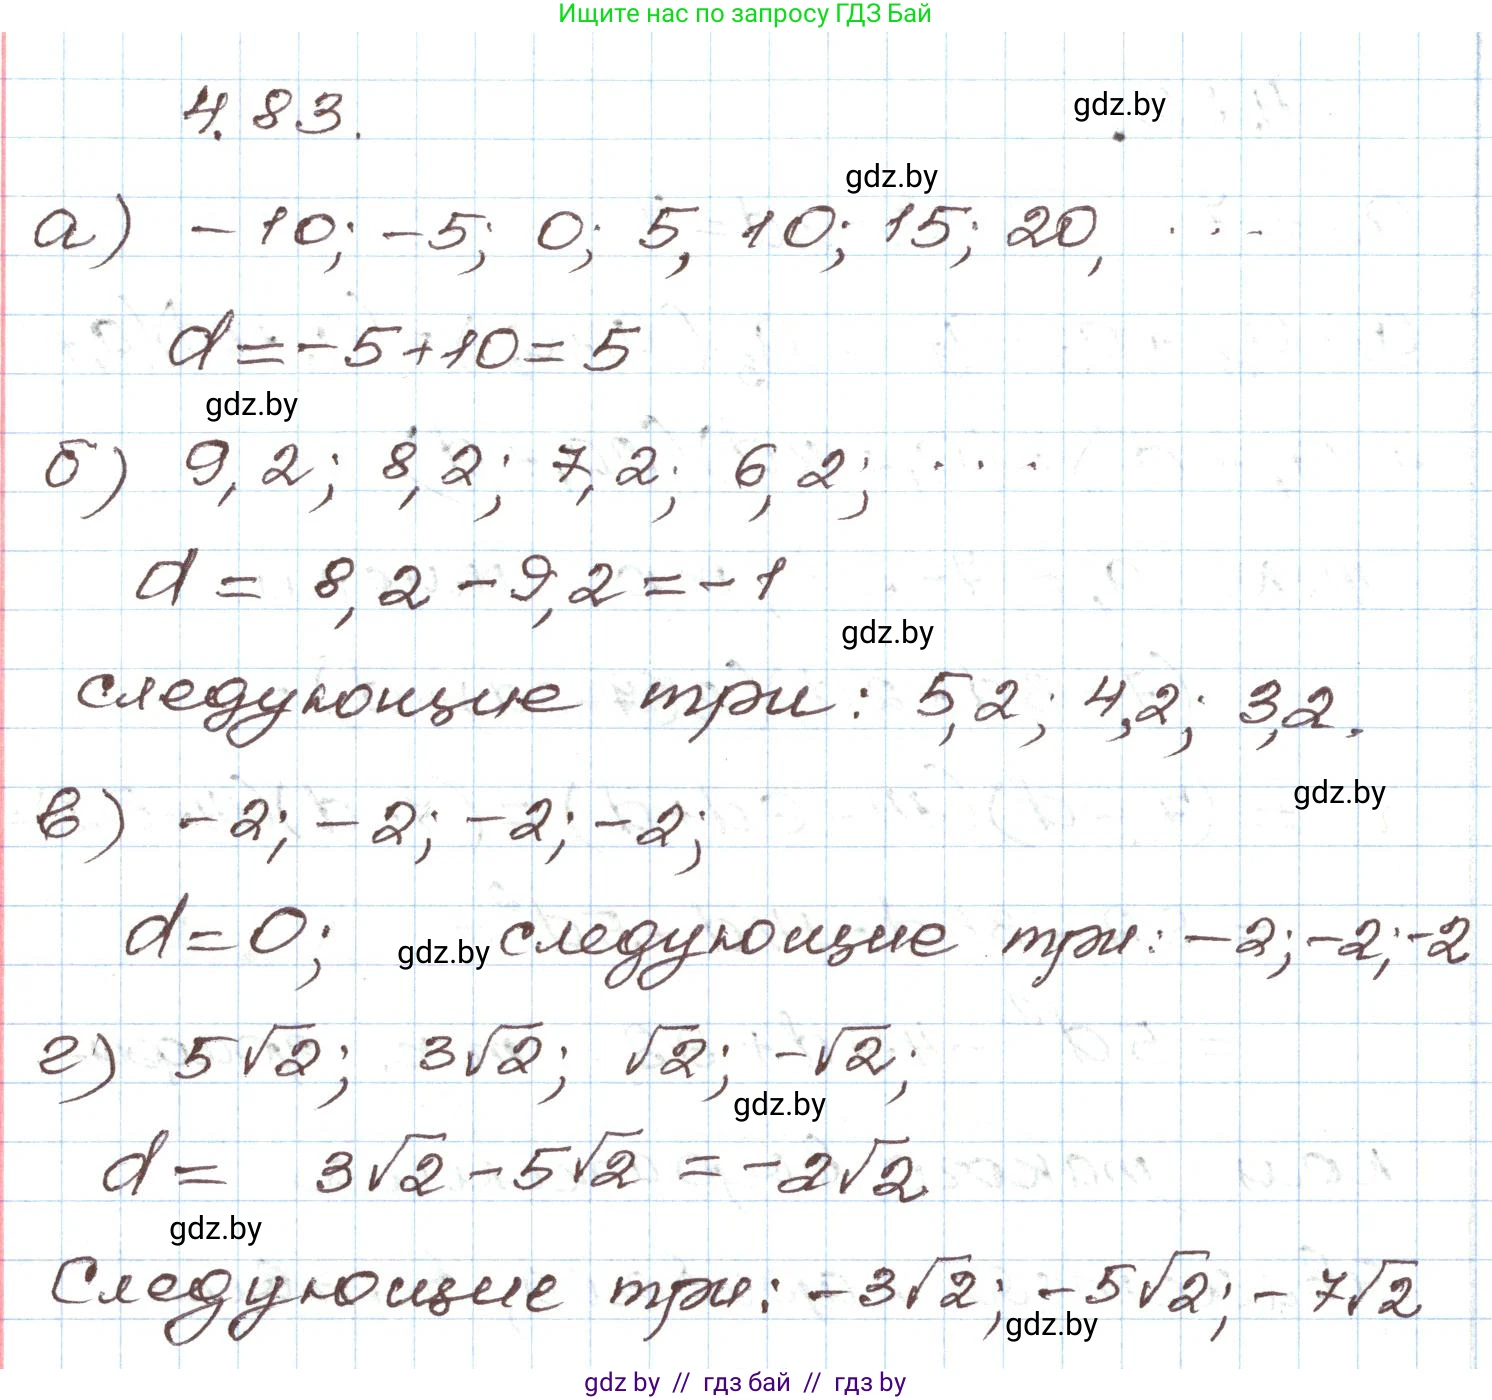 Ищите нас по запросу ГДЗ Бай
4.83.
gdz.by
gdz.by
а) -10; -5; 0; 5, 10; 15; 20, ...
d = -5+10 = 5
gdz.by
б) 9,2; 8,2; 7,2; 6,2; ...
d = 8,2 - 9,2 = -1
gdz.by
следующие три: 5,2; 4,2; 3,2.
gdz.by
в) -2; -2; -2; -2;
d=0; gdz.by следующие три: -2; -2; -2
г) 5√2; 3√2; √2; -√2;
gdz.by
d = 3√2 - 5√2 = -2√2
gdz.by
Следующие три: -3√2; -5√2; -7√2
gdz.by
gdz by // гдз бай // гдз by